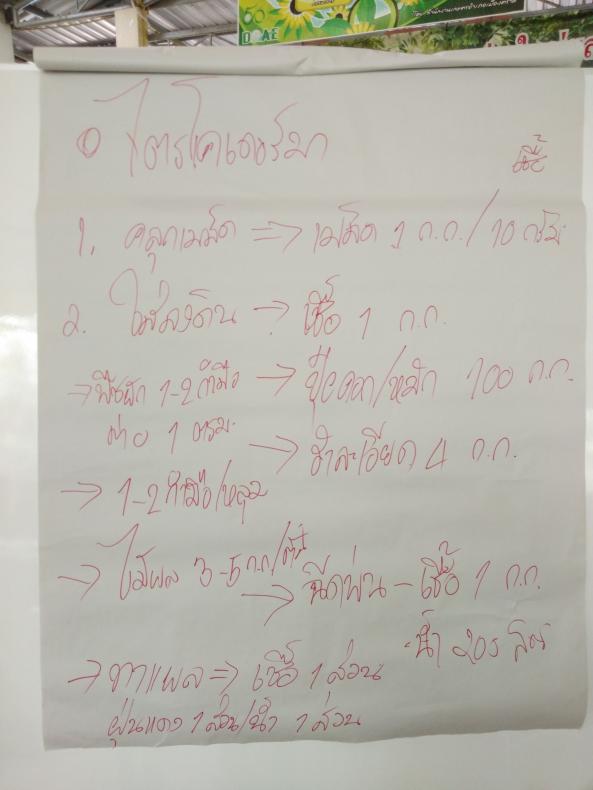 60
DOAE
๐ ไตรโคเดอร์มา
เชื้อ
1. คลุกเมล็ด => เมล็ด 1 ก.ก./10 กรัม
2. ใส่ลงดิน → เชื้อ 1 ก.ก.
→ พืชผัก 1-2 กำมือ → ปุ๋ยคอก/หมัก 100 ก.ก.
ต่อ 1 ตรม. → รำละเอียด 4 ก.ก.
→ 1-2 กำมือ/หลุม
→ ไม้ผล 3-5 ก.ก/ต้น
→ ฉีดพ่น - เชื้อ 1 ก.ก.
น้ำ 200 ลิตร
→ ทาแผล => เชื้อ 1 ส่วน
ฝุ่นแดง 1 ส่วน/น้ำ 1 ส่วน